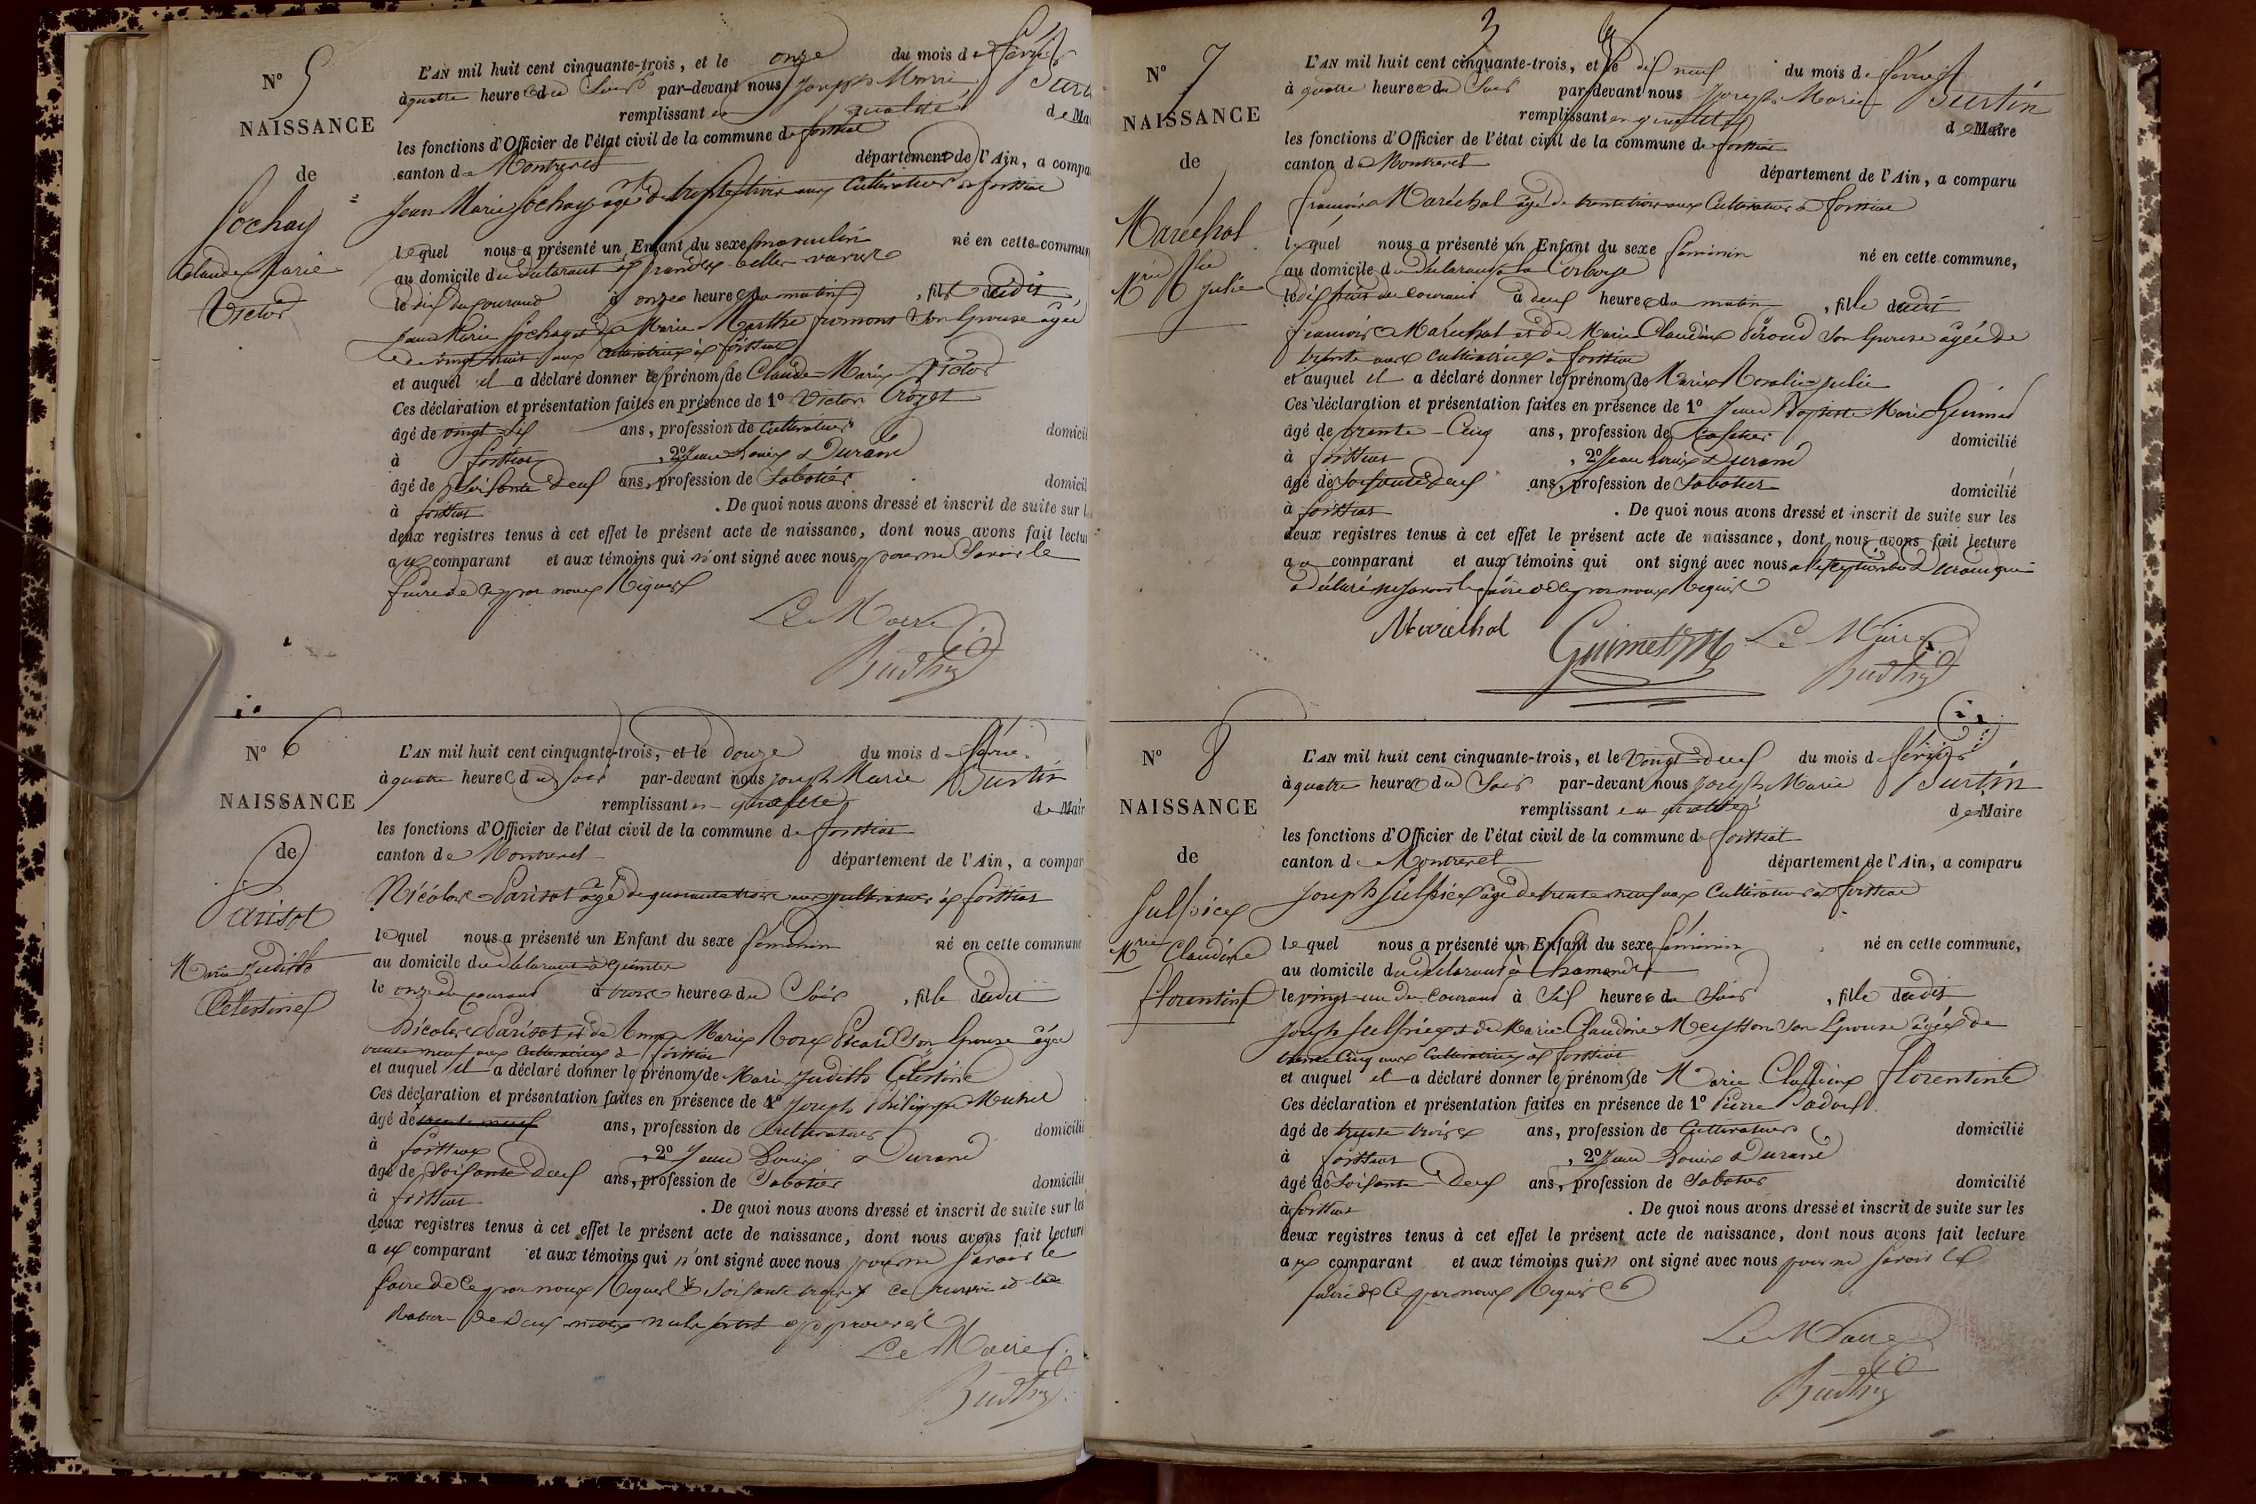 N° 5
NAISSANCE
de
Sochay
Claude Marie
Victor
L'AN mil huit cent cinquante-trois, et le onze du mois de février
à quatre heures du soir par-devant nous Joseph Marie
remplissant en qualité de Ma
les fonctions d'Officier de l'état civil de la commune de foissiat
canton de Montrevel département de l'Ain, a compa
Jean Marie Sochay âgé de trente trois ans Cultivateur à foissiat
lequel nous a présenté un Enfant du sexe masculin né en cette commun
au domicile du déclarant
le dix du courant à onze heures du matin, fils dudit
Jean Marie Sochay et de Marie Marthe fromont son Epouse âgée
de vingt huit ans cultivatrice à foissiat
et auquel il a déclaré donner les prénoms de Claude-Marie Victor
Ces déclaration et présentation faites en présence de 1° Victor Crozet
âgé de vingt-six ans, profession de cultivateur domicil
à foissiat, 2° Jean Louis Durand
âgé de soixante deux ans, profession de Sabotier domicil
à foissiat. De quoi nous avons dressé et inscrit de suite sur l
deux registres tenus à cet effet le présent acte de naissance, dont nous avons fait lectu
aux comparant et aux témoins qui n'ont signé avec nous pour ne savoir le
faire de ce par nous Requis
Le Maire
N° 6
NAISSANCE
de
Parisot
Marie Judith
Célestine
L'AN mil huit cent cinquante-trois, et le douze du mois de février
à quatre heures du soir par-devant nous Joseph Marie Burtin
remplissant en qualité de Mair
les fonctions d'Officier de l'état civil de la commune de foissiat
canton de Montrevel département de l'Ain, a compar
Nicolas Parisot âgé de quarante trois ans cultivateur à foissiat
lequel nous a présenté un Enfant du sexe féminin né en cette commune
au domicile du déclarant à
le onze du courant à heures du soir, fille dudit
Nicolas Parisot et de Marie Rose Picard son Epouse âgée
trente neuf ans cultivatrice à foissiat
et auquel il a déclaré donner les prénoms de Marie Judith Célestine
Ces déclaration et présentation faites en présence de 1° Joseph Philippe Michel
âgé de trente neuf ans, profession de Cultivateur domicilié
à foissiat, 2° Jean Louis Durand
âgé de soixante deux ans, profession de Sabotier domicilié
à foissiat. De quoi nous avons dressé et inscrit de suite sur les
deux registres tenus à cet effet le présent acte de naissance, dont nous avons fait lecture
aux comparant et aux témoins qui n'ont signé avec nous pour ne savoir le
faire de ce par nous Requis soixante trois ce
de deux mots
Le Maire
3
N° 7
NAISSANCE
de
Maréchal
Mrie Rlie Julie
L'AN mil huit cent cinquante-trois, et le dix neuf du mois de février
à quatre heures du soir par-devant nous Joseph Marie Burtin
remplissant en qualité de Maire
les fonctions d'Officier de l'état civil de la commune de foissiat
canton de Montrevel département de l'Ain, a comparu
françois Maréchal âgé de trente trois ans Cultivateur à foissiat
lequel nous a présenté un Enfant du sexe féminin né en cette commune,
au domicile du déclarant
le dix huit du courant à deux heures du matin, fille dudit
françois Maréchal et de Marie Claudine Péroud son Epouse âgée de
trente ans cultivatrice à foissiat
et auquel il a déclaré donner les prénoms de Marie Rosalie Julie
Ces déclaration et présentation faites en présence de 1° Jean Baptiste Marie Guimet
âgé de trente-cinq ans, profession de domicilié
à foissiat, 2° Jean Louis Durand
âgé de soixante deux ans, profession de Sabotier domicilié
à foissiat. De quoi nous avons dressé et inscrit de suite sur les
deux registres tenus à cet effet le présent acte de naissance, dont nous avons fait lecture
au comparant et aux témoins qui ont signé avec nous à l'exception de Durand qui
a déclaré ne savoir le faire de ce par nous Requis
Maréchal Guimet Le Maire
N° 8
NAISSANCE
de
Sulpice
Mrie Claudine
florentine
L'AN mil huit cent cinquante-trois, et le vingt-deux du mois de février
à quatre heures du soir par-devant nous Joseph Marie Burtin
remplissant en qualité de Maire
les fonctions d'Officier de l'état civil de la commune de foissiat
canton de Montrevel département de l'Ain, a comparu
Joseph Sulpice âgé de trente neuf ans Cultivateur à foissiat
lequel nous a présenté un Enfant du sexe féminin né en cette commune,
au domicile du déclarant à
le vingt-un du courant à six heures du soir, fille dudit
Joseph Sulpice et de Marie Claudine Meysson son Epouse âgée de
trente cinq ans Cultivatrice à foissiat
et auquel il a déclaré donner les prénoms de Marie Claudine florentine
Ces déclaration et présentation faites en présence de 1° Pierre
âgé de trente trois ans, profession de Cultivateur domicilié
à foissiat, 2° Jean Louis Durand
âgé de soixante-deux ans, profession de Sabotier domicilié
à foissiat. De quoi nous avons dressé et inscrit de suite sur les
deux registres tenus à cet effet le présent acte de naissance, dont nous avons fait lecture
aux comparant et aux témoins qui n'ont signé avec nous pour ne savoir le
faire de ce par nous Requis
Le Maire